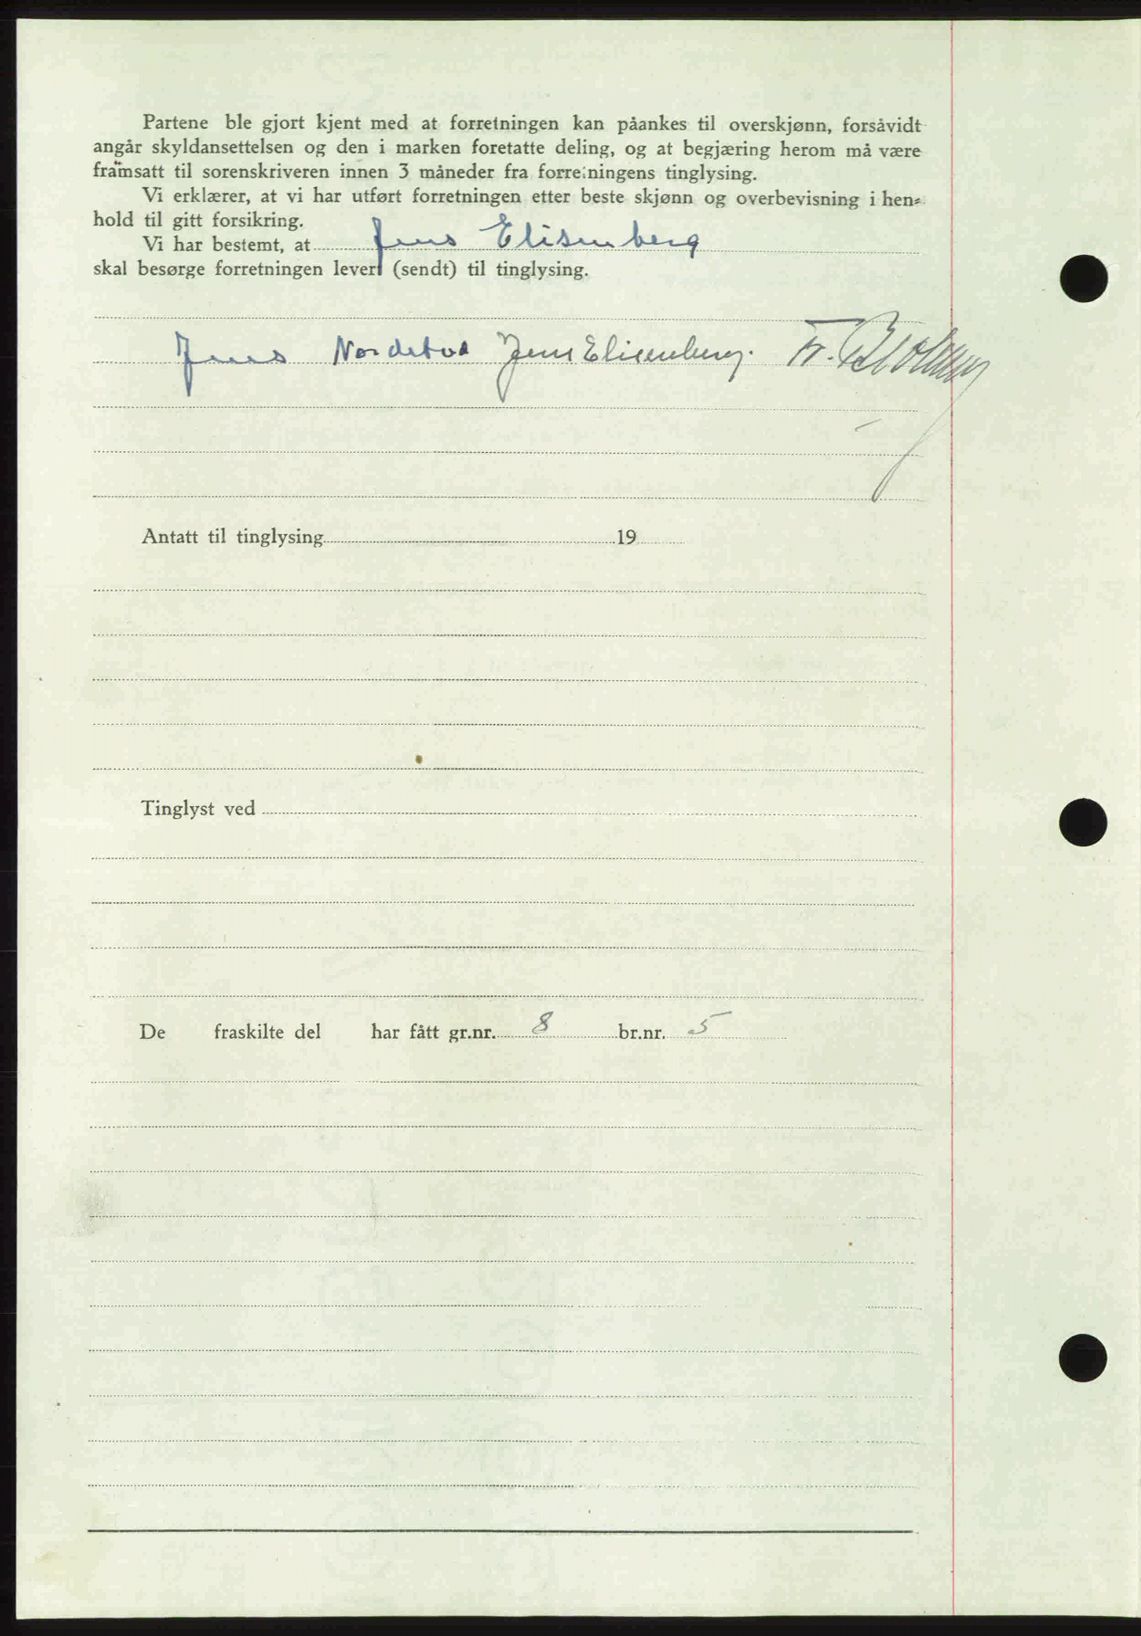 Partene ble gjort kjent med at forretningen kan påankes til overskjønn, forsåvidt
angår skyldansettelsen og den i marken foretatte deling, og at begjæring herom må være
framsatt til sorenskriveren innen 3 måneder fra forretningens tinglysing.
Vi erklærer, at vi har utført forretningen etter beste skjønn og overbevisning i hen-
hold til gitt forsikring.
Vi har bestemt, at Jens Elisenberg
skal besørge forretningen levert (sendt) til tinglysing.
Jens Nordebo Jens Elisenberg. Fr.
Antatt til tinglysing 19
Tinglyst ved
De fraskilte del har fått gr.nr. 8 br.nr. 5